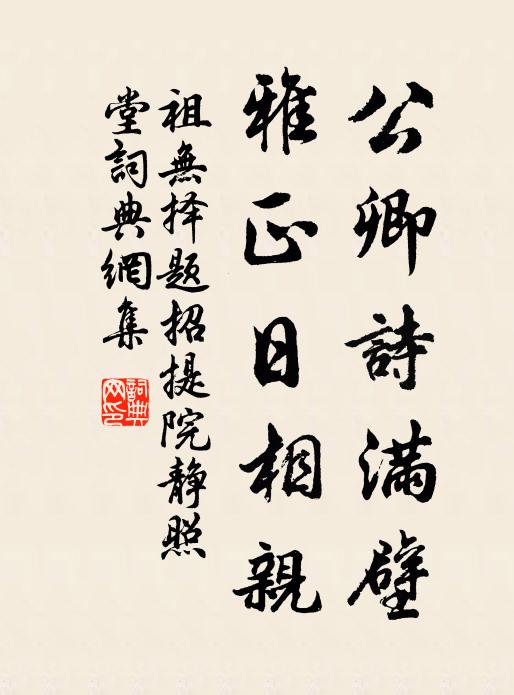 公卿詩滿壁
雅正日相親
祖無择题招提院静照
堂詞典網集
詞典網印